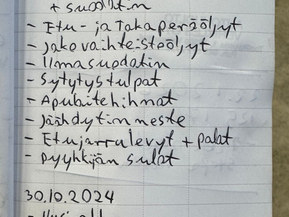 + suodatin
- Etu- ja Takaperäöljyt
- Jakovaihteistoöljyt
- Ilmasuodatin
- Sytytystulpat
- Apulaitehihnat
- Jäähdytinneste
- Etujarrulevyt + palat
- pyyhkijän sulat
30.10.2024